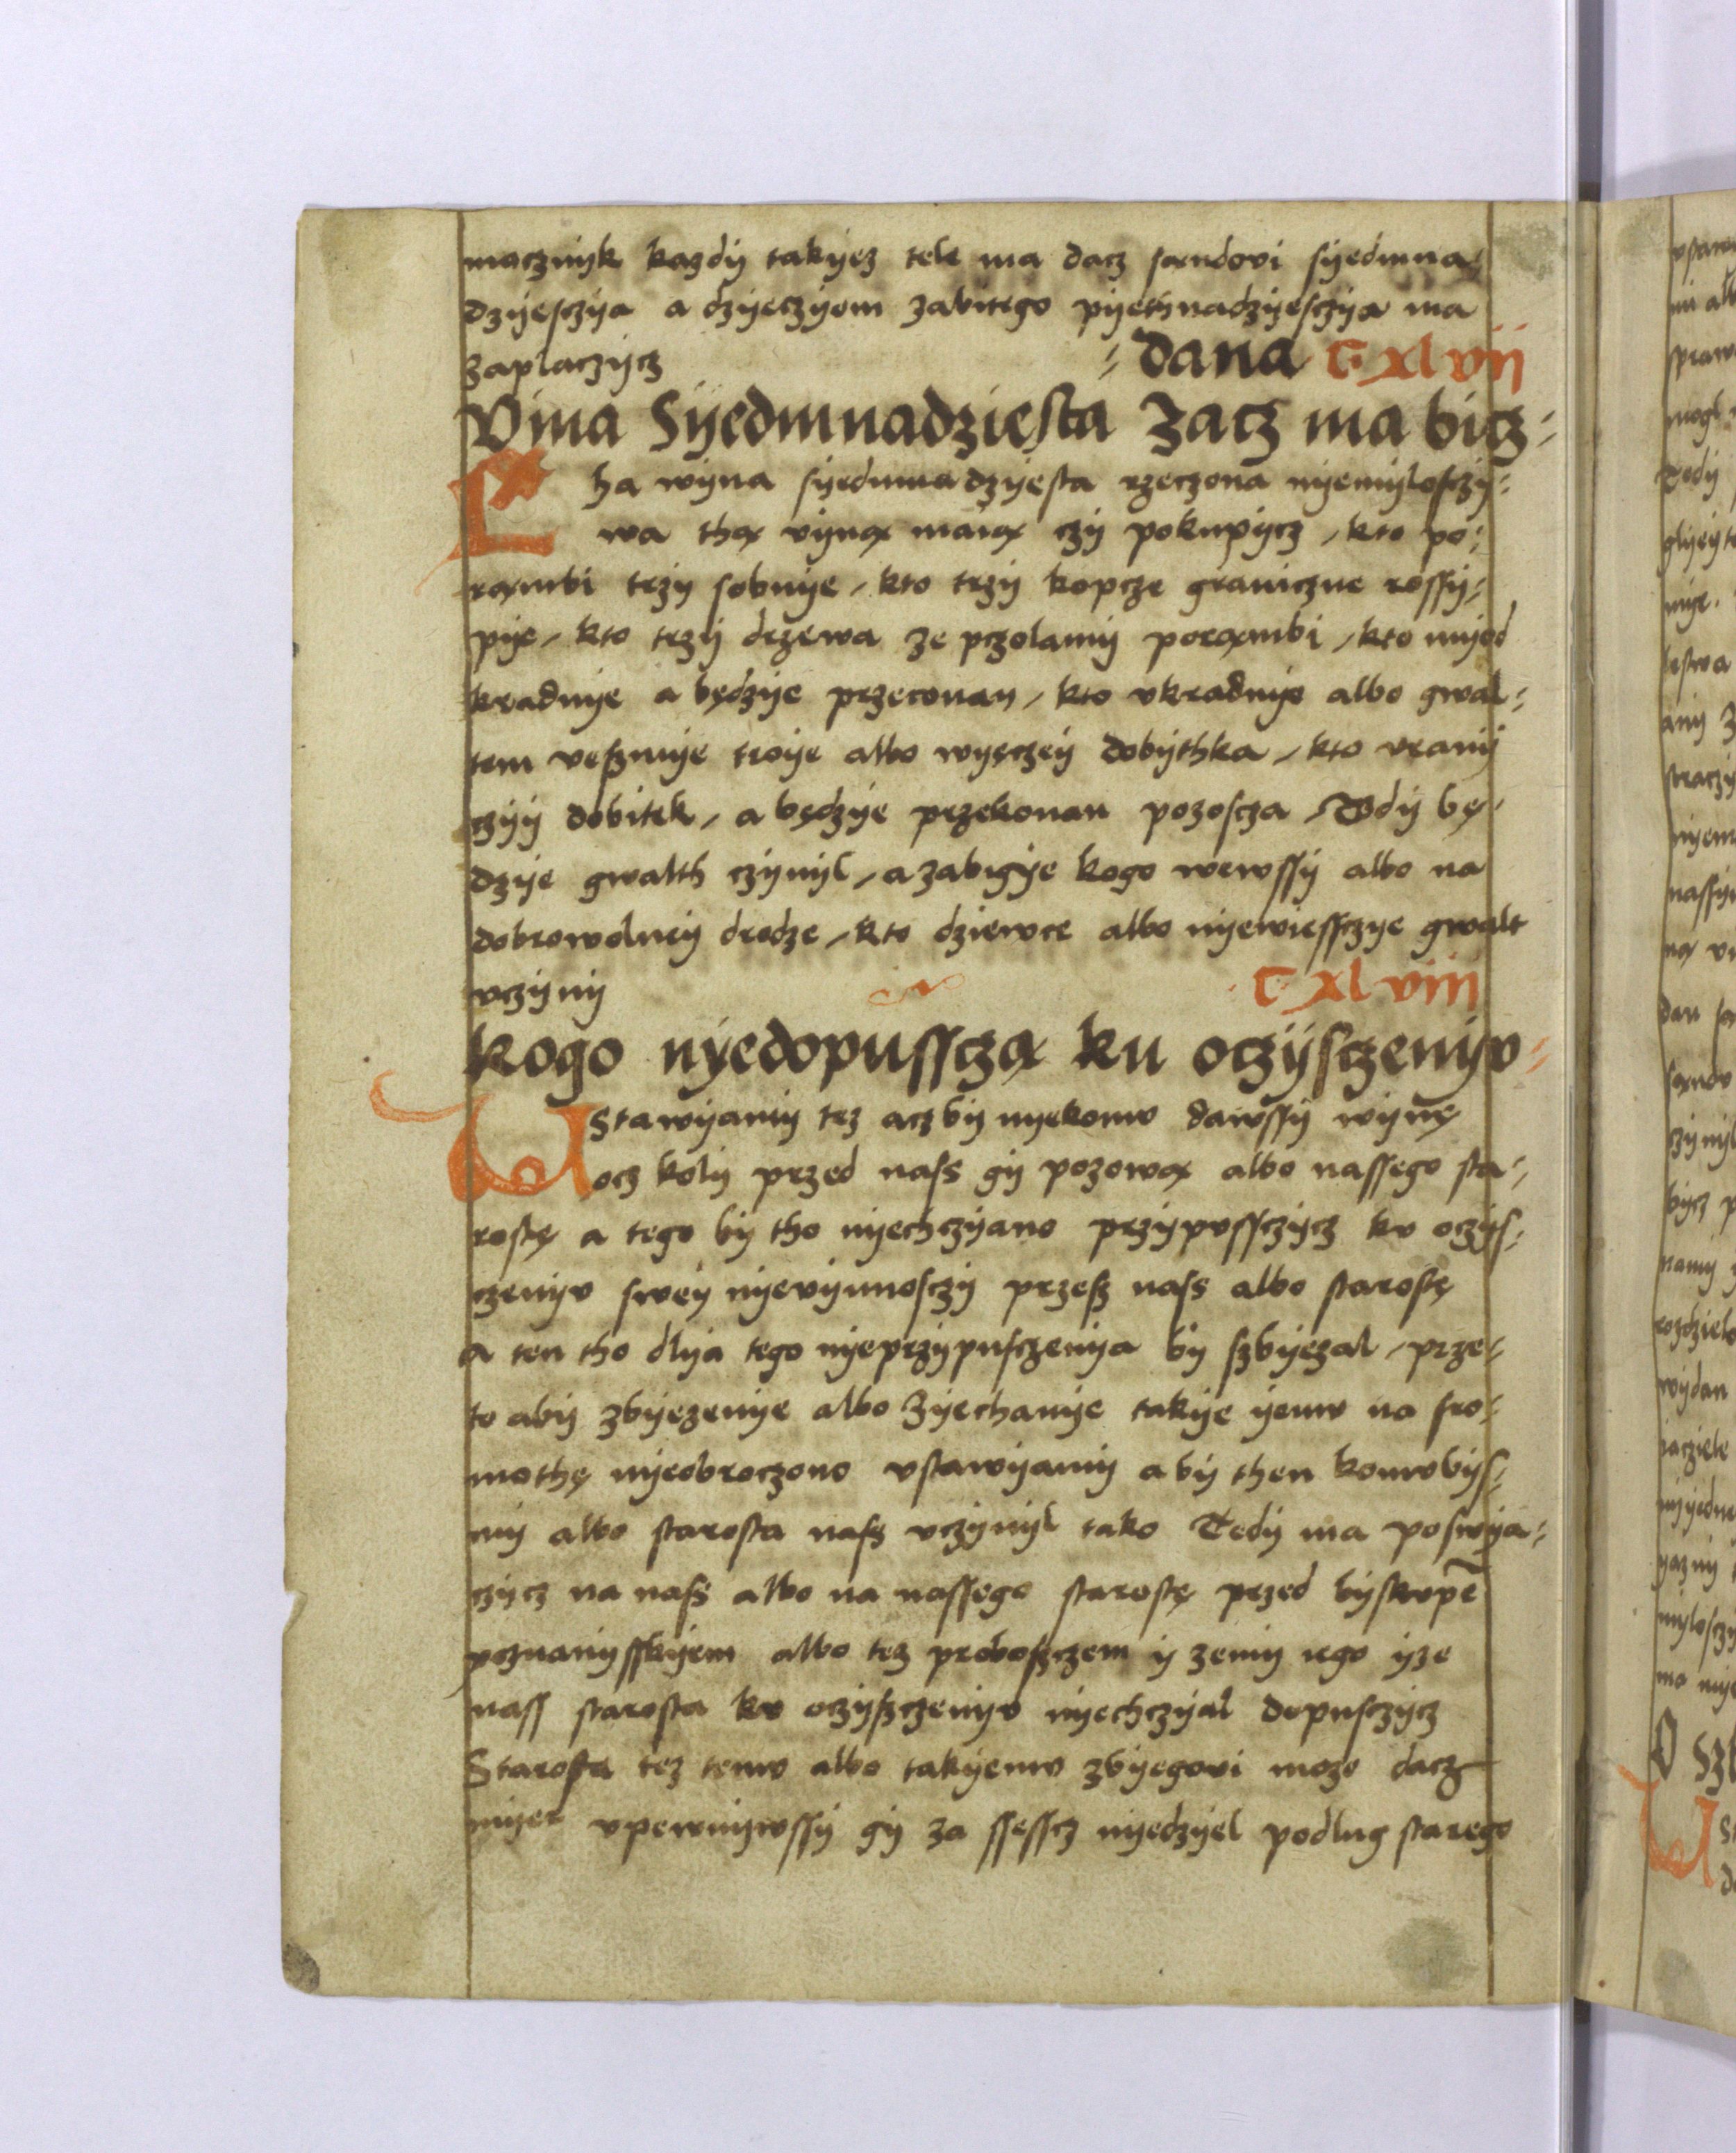 macznyk kazdy takyez tele ma dacz sandovi syedmna
dzyesczya a dzyeczyom zabitego pyethnadzyesczya ma
zaplaczycz
⸗ dana C xlvii
Vina Syedmnadziesta zacz ma bicz⸗
Tha wyna syedmnadzyesta rzeczona nyemylosczy⸗
wa thą vyną maią czy pokupycz / kto po⸗
rąmbi trzy sobnye / kto trzy kopcze graniczne rossy⸗
pye / kto trzy drzewa ze pczolamy porąmbi / kto myod
kradnye a będzye przeconan / kto vkradnye albo gwal⸗
tem veszmye troye albo wyęczey dobythka / kto vrany
czyy dobitek / a będzye przekonan pozoscza / Gdy bę⸗
dzye gwalth czynyl / a zabigye kogo wewssy albo na
dobrowolney drodze / kto dziewce albo nyewiessczye gwalt
vczyny
C xlviii
Kogo nyedopussczą ku oczysczenyv⸗
Wstawyamy tez aczby nyekomv dawssy wynę
ocz koly przed nass gy pozową albo nassego sta⸗
rostę a tego by tho nyechczyano przypvssczycz kv oczys⸗
czenyv swey nyevynnosczy przesz nass albo starostę
a ten tho dlya tego nyeprzypusczenya by szbyezal / prze⸗
to aby zbyezenye albo zyechanye takye yemv na sro⸗
mothę nyeobroczono vstawyamy aby then komvbys⸗
my albo starosta nasz vczynyl tako Tedy ma poswya⸗
czycz na nass albo na nassego starostę przed byskvpē
poznanysskyem albo tez proboszczem y zemy iego yze
nass starosta kv oczyszczenyv nyechczyal dopusczycz
Starosta tez temv albo takyemv zbyegovi moze dacz
myer vpewnywssy gy za ssesscz nyedzyel podlug starego